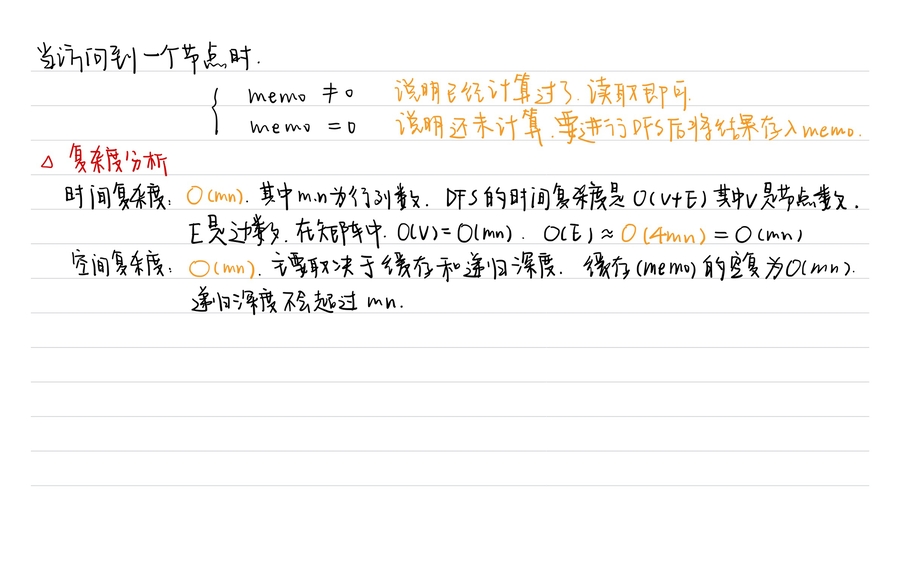 当访问到一个节点时.
memo ≠0 说明已经计算过了. 读取即可.
memo =0 说明还未计算. 要进行DFS后将结果存入memo.
△ 复杂度分析
时间复杂度: O(mn). 其中m.n为行列数. DFS的时间复杂度是O(V+E) 其中V是节点数.
E是边数. 在矩阵中. O(V)=O(mn). O(E)≈O(4mn)=O(mn)
空间复杂度: O(mn). 主要取决于缓存和递归深度. 缓存(memo)的空复为O(mn).
递归深度不会超过mn.